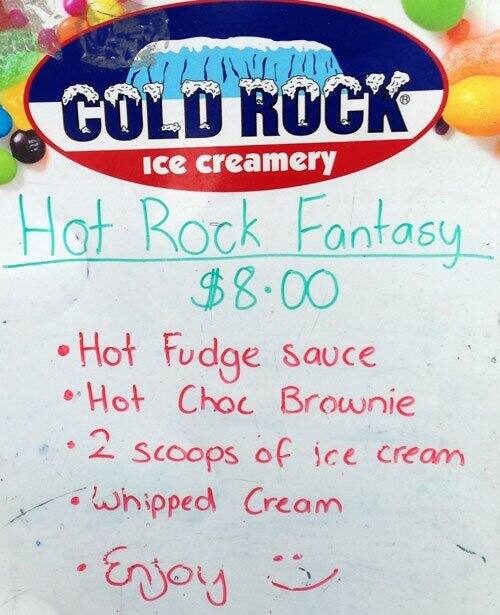 COLD ROCK®
Ice creamery
Hot Rock Fantasy
$8.00
• Hot Fudge sauce
• Hot Choc Brownie
• 2 scoops of ice cream
• Whipped Cream
• Enjoy